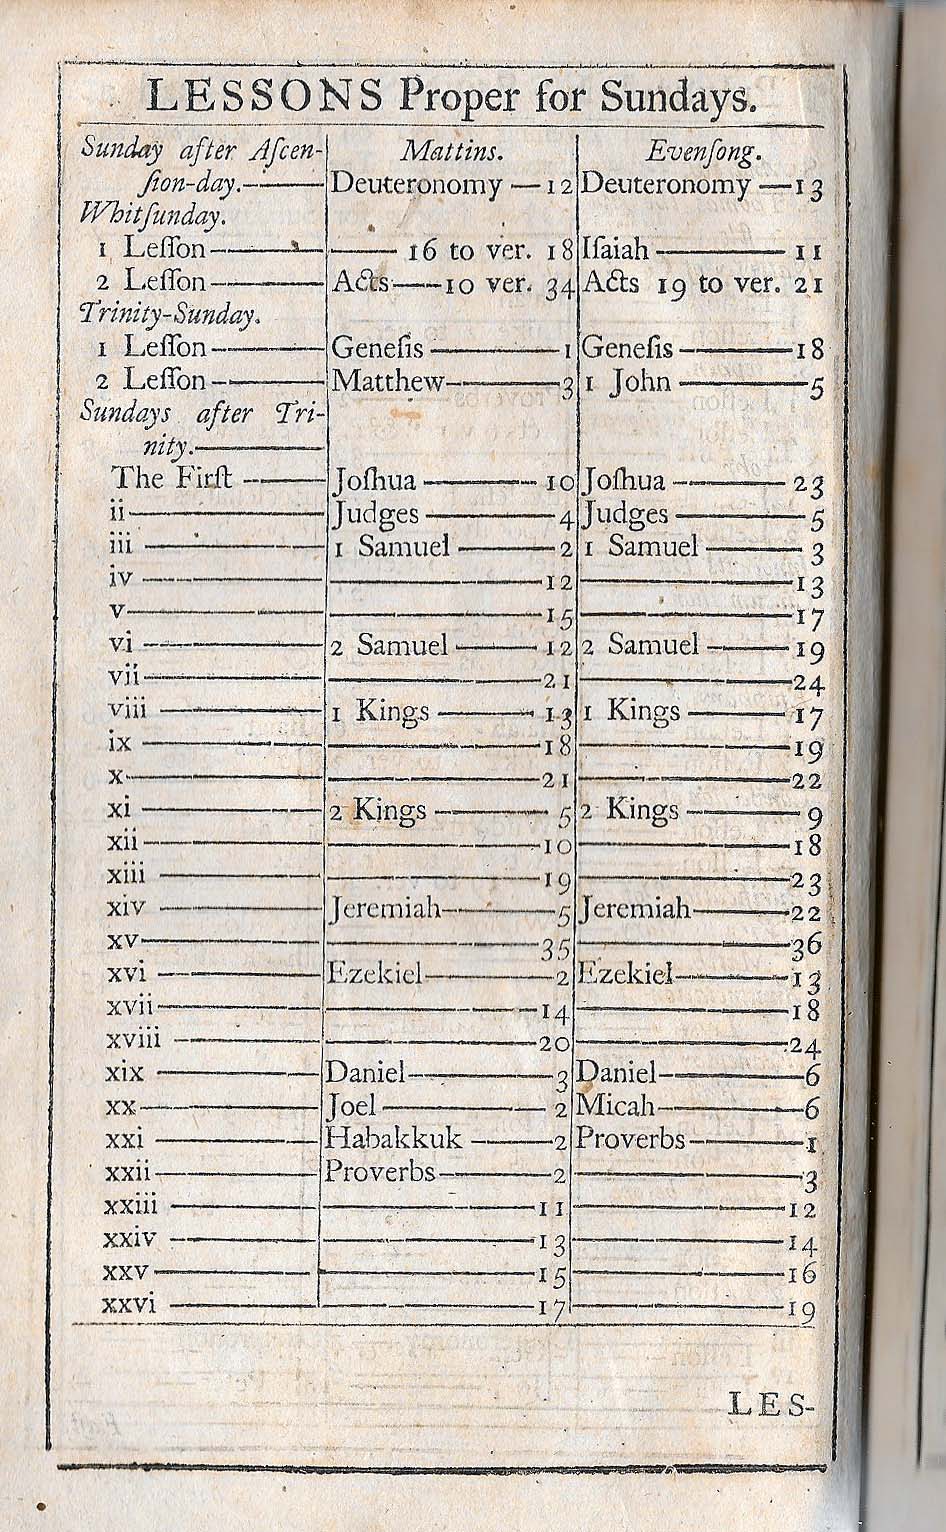 LESSONS Proper for Sundays.
Sunday after Aſcen- Mattins. Evenſong.
ſion-day.—— Deuteronomy —12 Deuteronomy —13
Whitſunday.
1 Leſſon—— —— 16 to ver. 18 Iſaiah —— 11
2 Leſſon—— Acts——10 ver. 34 Acts 19 to ver. 21
Trinity-Sunday.
1 Leſſon—— Geneſis ——1 Geneſis ——18
2 Leſſon—— Matthew——3 1 John ——5
Sundays after Tri-
nity.——
The Firſt —— Joſhua ——10 Joſhua ——23
ii—— Judges ——4 Judges ——5
iii —— 1 Samuel ——2 1 Samuel ——3
iv —— ——12 ——13
v—— ——15 ——17
vi —— 2 Samuel ——12 2 Samuel ——19
vii—— ——21 ——24
viii —— 1 Kings ——13 1 Kings ——17
ix —— ——18 ——19
x—— ——21 ——22
xi —— 2 Kings ——5 2 Kings ——9
xii—— ——10 ——18
xiii —— ——19 ——23
xiv —— Jeremiah——5 Jeremiah——22
xv—— ——35 ——36
xvi —— Ezekiel——2 Ezekiel——13
xvii—— ——14 ——18
xviii —— ——20 ——24
xix —— Daniel——3 Daniel——6
xx—— Joel —— 2 Micah——6
xxi —— Habakkuk ——2 Proverbs——1
xxii—— Proverbs——2 ——3
xxiii —— ——11 ——12
xxiv —— ——13 ——14
xxv—— ——15 ——16
xxvi —— ——17 ——19
LES-